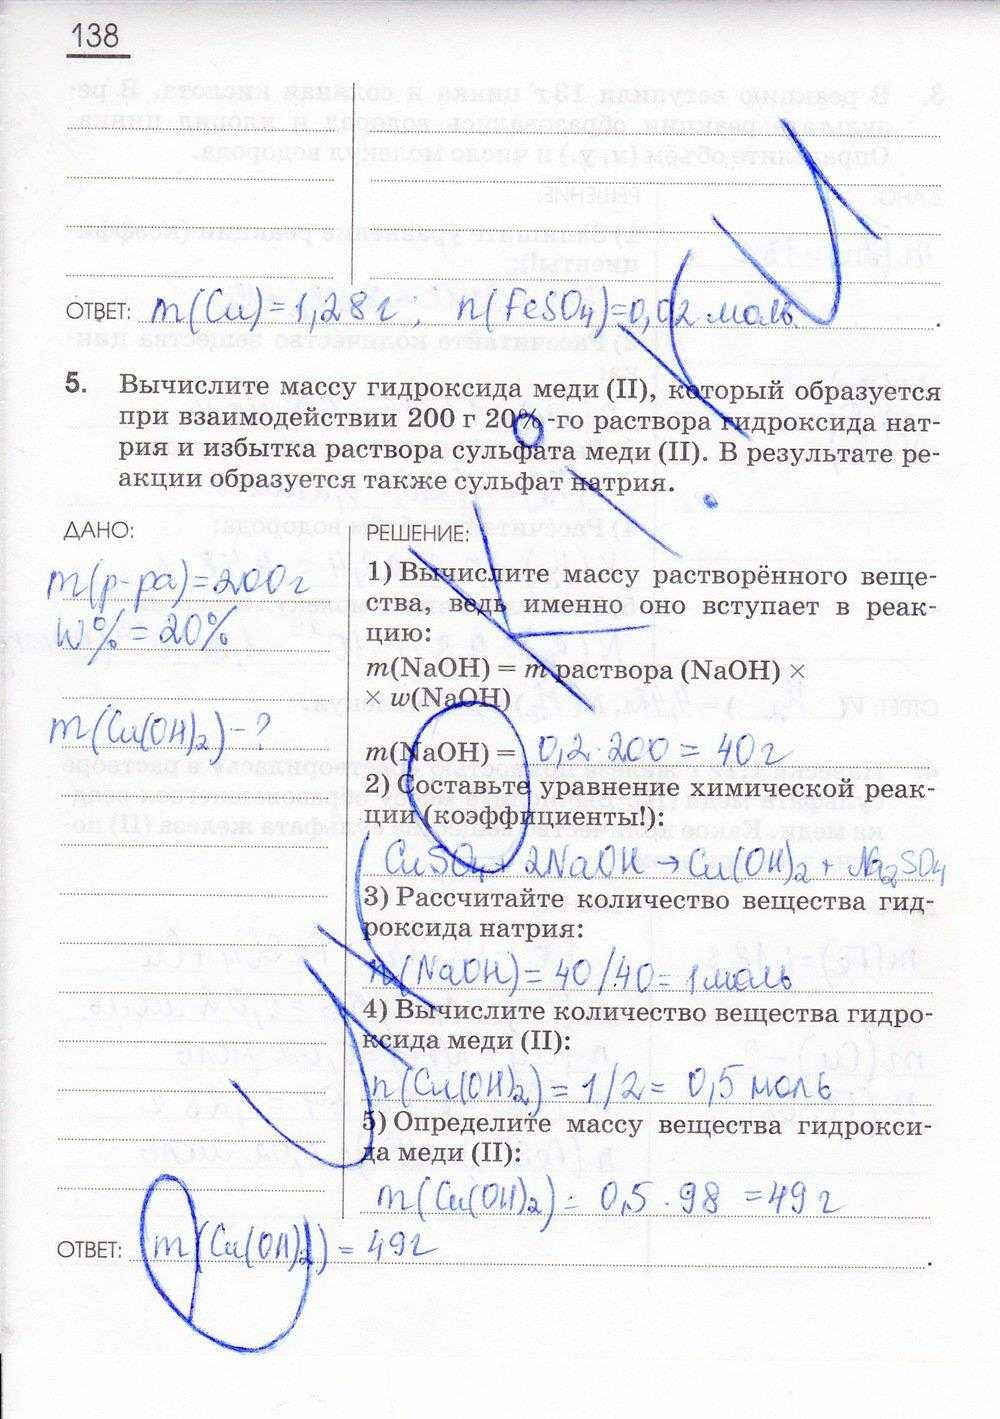 138
ОТВЕТ: m(Cu)=1,28г; n(FeSO4)=0,02 моль.
5. Вычислите массу гидроксида меди (II), который образуется
при взаимодействии 200 г 20%-го раствора гидроксида нат-
рия и избытка раствора сульфата меди (II). В результате ре-
акции образуется также сульфат натрия.
ДАНО:
m(р-ра)=200г
w%=20%
m(Cu(OH)2)-?
РЕШЕНИЕ:
1) Вычислите массу растворённого веще-
ства, ведь именно оно вступает в реак-
цию:
m(NaOH) = m раствора (NaOH) ×
× w(NaOH)
m(NaOH) = 0,2·200 = 40г
2) Составьте уравнение химической реак-
ции (коэффициенты!):
CuSO4 + 2NaOH → Cu(OH)2 + Na2SO4
3) Рассчитайте количество вещества гид-
роксида натрия:
n(NaOH) = 40/40 = 1моль
4) Вычислите количество вещества гидро-
ксида меди (II):
n(Cu(OH)2) = 1/2 = 0,5 моль
5) Определите массу вещества гидрокси-
да меди (II):
m(Cu(OH)2) = 0,5 · 98 = 49г
ОТВЕТ: m(Cu(OH)2) = 49г.